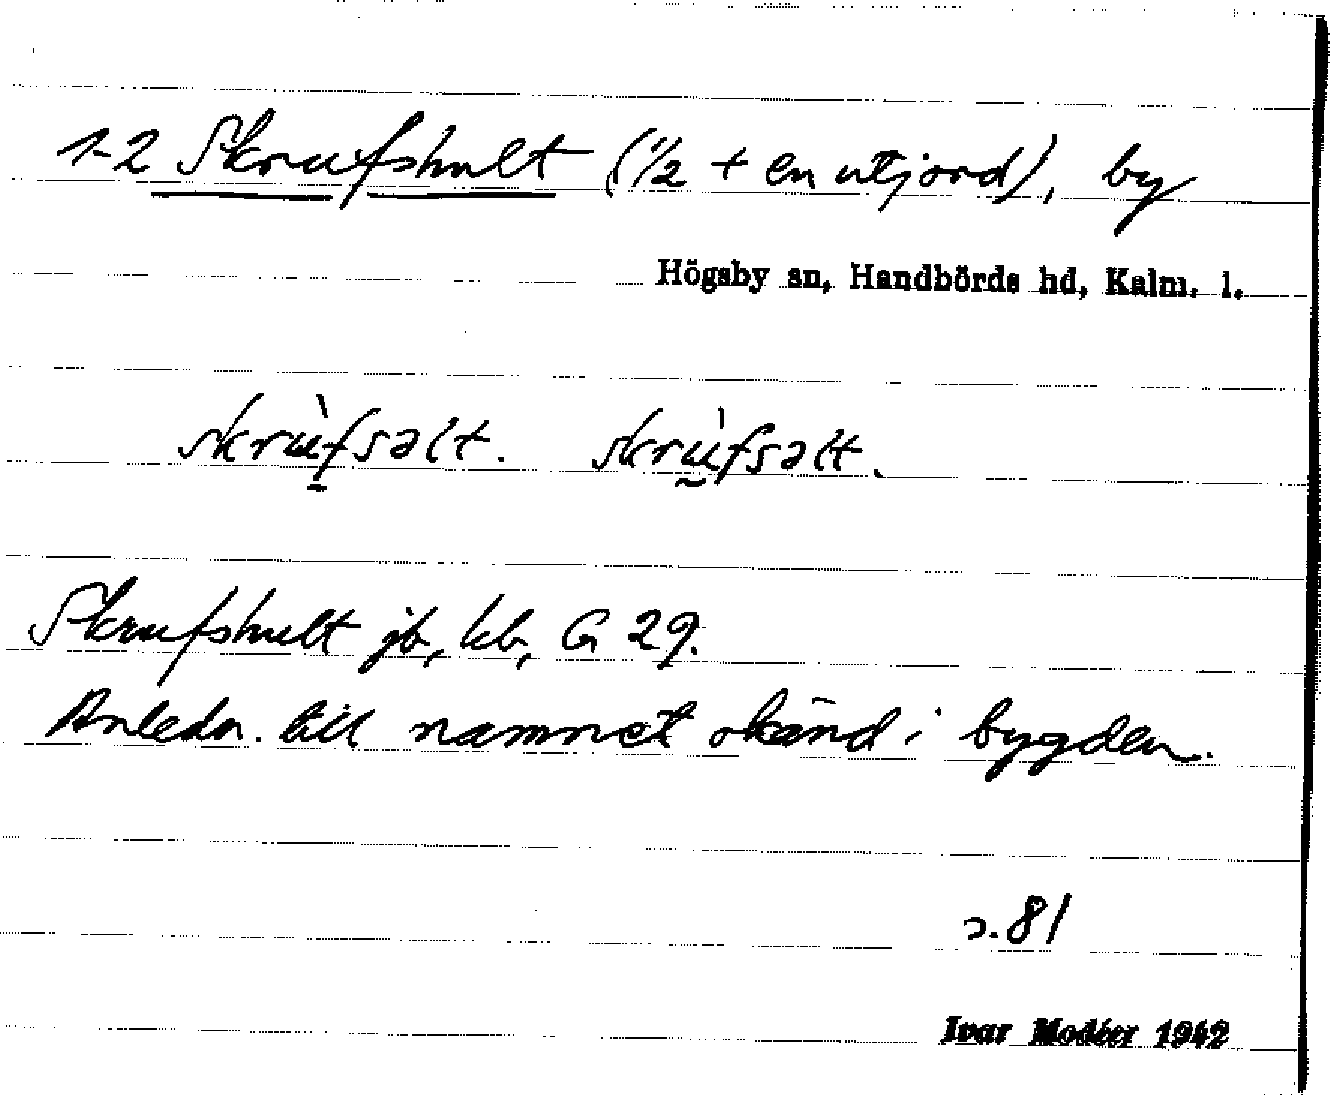 1-2 Skrufshult (1/2 + en utjord), by
Högsby sn, Handbörds hd, Kalm. l.
skrù̠fsəlt. skrṵ̀fsəlt.
Skrufshult jb, kb, G 29.
Anledn. till namnet okänd i bygden.
s. 81
Ivar Modéer 1942